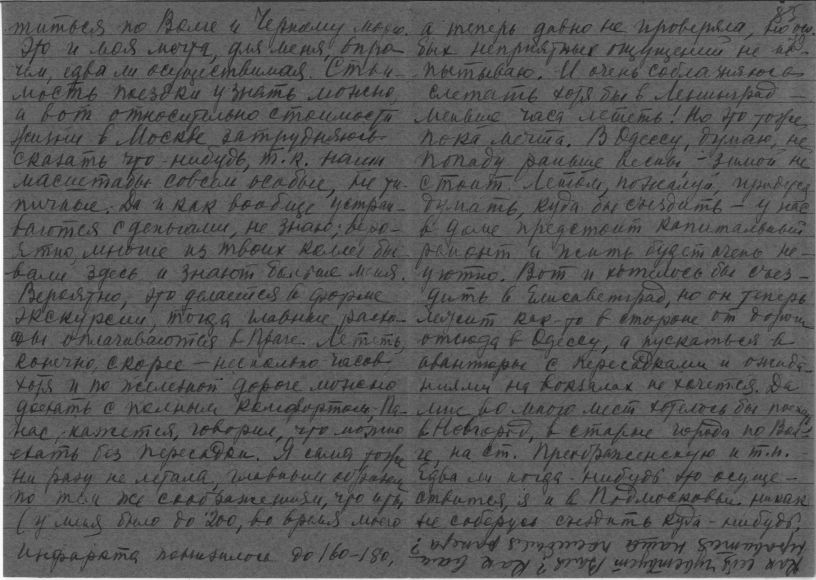 титься по Волге и Черному морю.
Это и моя мечта, для меня, впро-
чем, едва ли осуществимая. Стои-
мость поездки узнать можно,
а вот относительно стоимости
жизни в Москве затрудняюсь
сказать что-нибудь, т.к. наши
масштабы совсем особые, не ти-
пичные. Да и как вообще устраи-
ваются с деньгами, не знаю; веро-
ятно, многие из твоих коллег бы-
вали здесь и знают больше меня.
Вероятно, это делается в форме
экскурсии, тогда главные расхо-
ды оплачиваются в Праге. Лететь,
конечно, скорее – несколько часов
хотя и по железной дороге можно
доехать с полным комфортом. Па-
нас, кажется, говорил, что можно
ехать без пересадки. Я сама тоже
ни разу не летала, главным образом
по тем же соображениям, что и ты,
(у меня было до 200, во время моего
инфаркта понизилось до 160-180,
85
а теперь давно не проверяла, но осо-
бых неприятных ощущений не ис-
пытываю. И очень соблазняюсь
слетать хотя бы в Ленинград –
меньше часа лететь! Но это тоже
пока мечта. В Одессу, думаю, не
попаду раньше весны – зимой не
стоит. Летом, пожалуй, придется
думать, куда бы съездить – у нас
в доме предстоит капитальный
ремонт и жить будет очень не-
уютно. Вот и хотелось бы съез-
дить в Елисаветград, но он теперь
лежит как-то в стороне от дороги
отсюда в Одессу, а пускаться в
авантюры с пересадками и ожида-
ниями на вокзалах не хочется. Да
мне во много мест хотелось бы поехать
в Новгород, в старые города по Вол-
ге, на ст. Преображенскую и т.п. –
Едва ли когда-нибудь это осуще-
ствится, я и в Подмосковьи никак
не соберусь съездить куда-нибудь.
Как себя чувствует Валя? Как вам
нравится наша